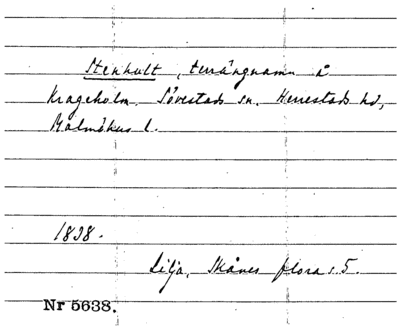 Stenhult, terrängnamn å
Krageholm. Sövestads sn. Herrestads hd,
Malmöhus l.
1838.
Lilja, Skånes flora s. 5.
Nr 5638.